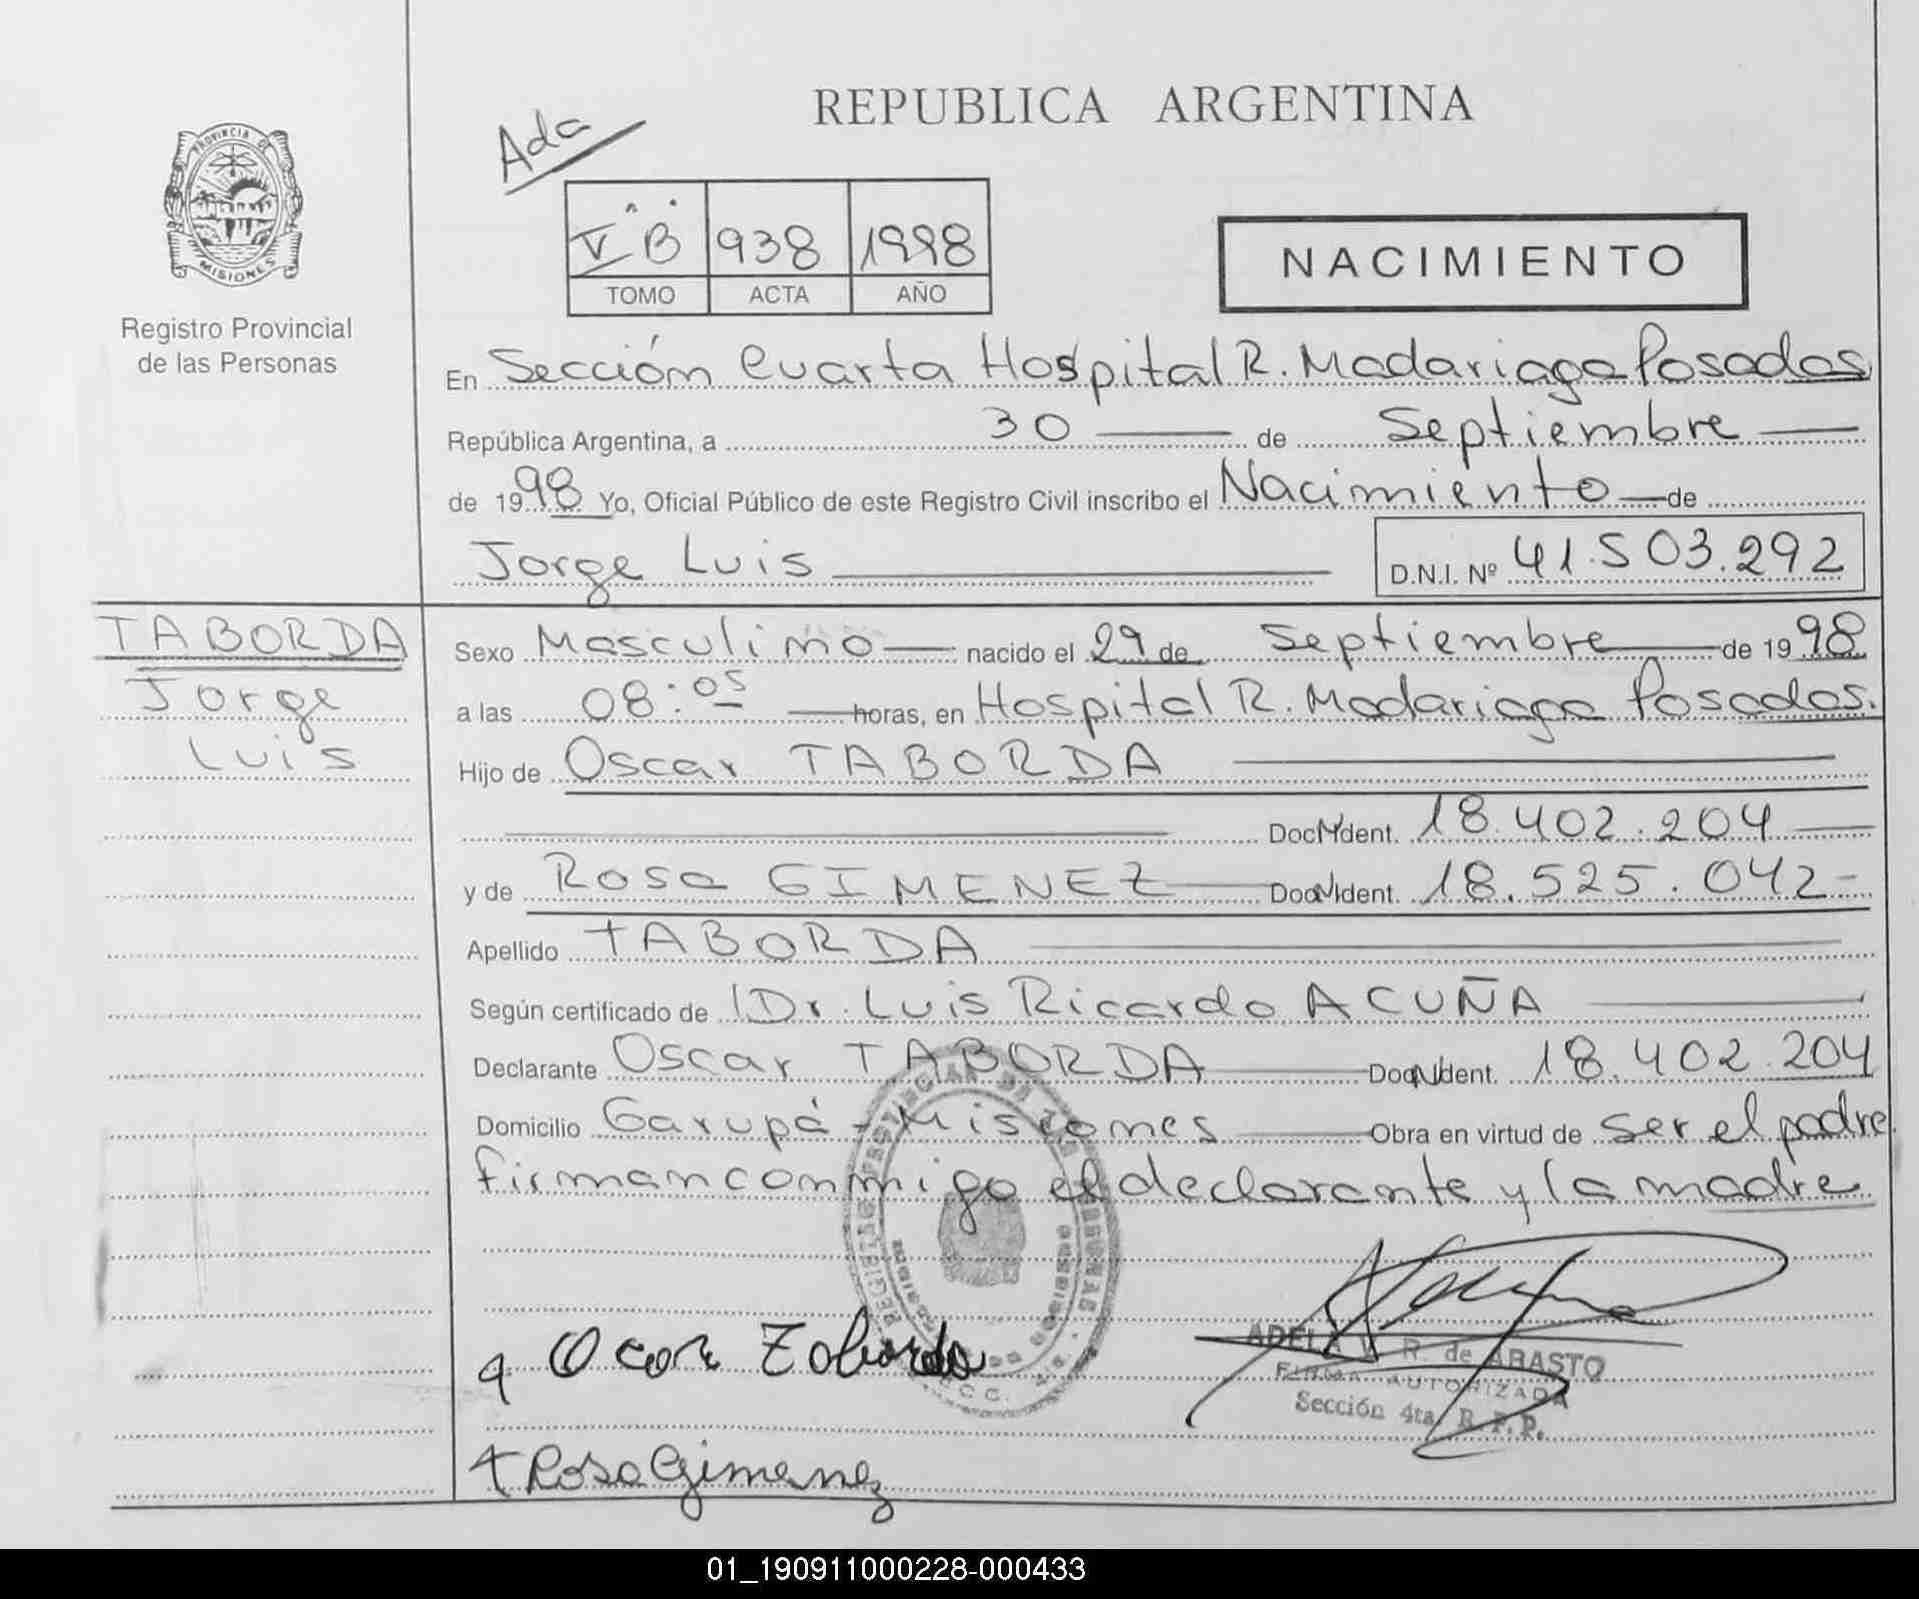 REPUBLICA ARGENTINA
Ada
PROVINCIA DE
MISIONES
Registro Provincial
de las Personas
V B 938 1998
TOMO ACTA AÑO
NACIMIENTO
En Sección Cuarta Hospital R. Madariaga Posadas
República Argentina, a 30 de Septiembre
de 1998 Yo, Oficial Público de este Registro Civil inscribo el Nacimiento de
Jorge Luis D.N.I. Nº 41.503.292
TABORDA
Jorge
Luis
Sexo Masculino nacido el 29 de Septiembre de 1998
a las 08:05 horas, en Hospital R. Madariaga Posadas.
Hijo de Oscar TABORDA
Doc. Ident. 18.402.204
y de Rosa GIMENEZ Doc. Ident. 18.525.042
Apellido TABORDA
Según certificado de Dr. Luis Ricardo ACUÑA
Declarante Oscar TABORDA Doc. Ident. 18.402.204
Domicilio Garupá - Misiones Obra en virtud de ser el padre
firman conmigo el declarante y la madre
ADELA R. de ABASTO
FIRMA AUTORIZADA
Sección 4ta. R.P.P.
Rosa Gimenez
01_190911000228-000433